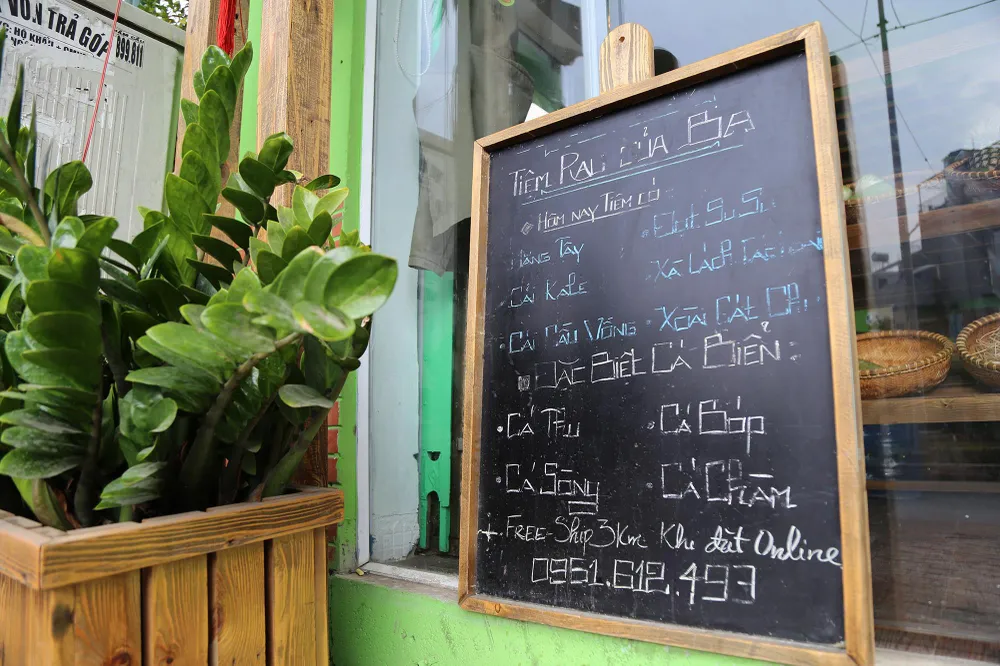 VỐN TRẢ GÓP
899.811
TIỆM RAU CỦA BA
HÔM NAY TIỆM CÓ
MĂNG TÂY
ĐỌT SU SU
CẢI KALE
XÀ LÁCH CÁC LOẠI
CẢI CẦU VỒNG
XOÀI CÁT
ĐẶC BIỆT CÁ BIỂN
CÁ THU
CÁ BỚP
CÁ SÒNG
CÁ CHẼM
+ FREE-Ship 3km Khi đặt Online
0961.612.497